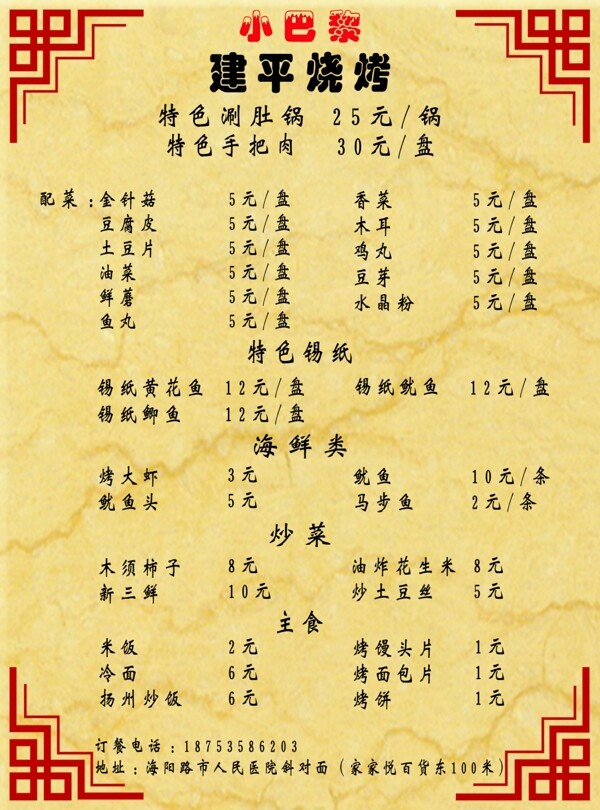 小巴黎
建平烧烤
特色涮肚锅 25元/锅
特色手把肉 30元/盘
配菜:金针菇 5元/盘 香菜 5元/盘
豆腐皮 5元/盘 木耳 5元/盘
土豆片 5元/盘 鸡丸 5元/盘
油菜 5元/盘 豆芽 5元/盘
鲜蘑 5元/盘 水晶粉 5元/盘
鱼丸 5元/盘
特色锡纸
锡纸黄花鱼 12元/盘 锡纸鱿鱼 12元/盘
锡纸鲫鱼 12元/盘
海鲜类
烤大虾 3元 鱿鱼 10元/条
鱿鱼头 5元 马步鱼 2元/条
炒菜
木须柿子 8元 油炸花生米 8元
新三鲜 10元 炒土豆丝 5元
主食
米饭 2元 烤馒头片 1元
冷面 6元 烤面包片 1元
扬州炒饭 6元 烤饼 1元
订餐电话:18753586203
地址:海阳路市人民医院斜对面(家家悦百货东100米)